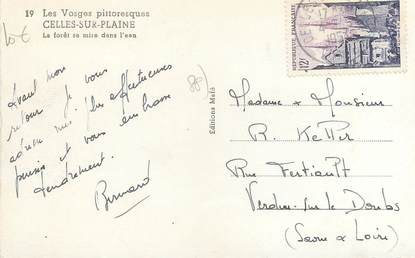 19 Les Vosges pittoresques
CELLES-SUR-PLAINE
La forêt se mire dans l'eau
10€
Avant mon
retour je vous
adresse mes plus affectueuses
pensées et vous embrasse
tendrement.
Bernard
Editions Mafà
RÉPUBLIQUE FRANÇAISE
12F
Madame & Monsieur
R. Keller
Rue Fertiault
Verdun sur le Doubs
(Saone & Loire)